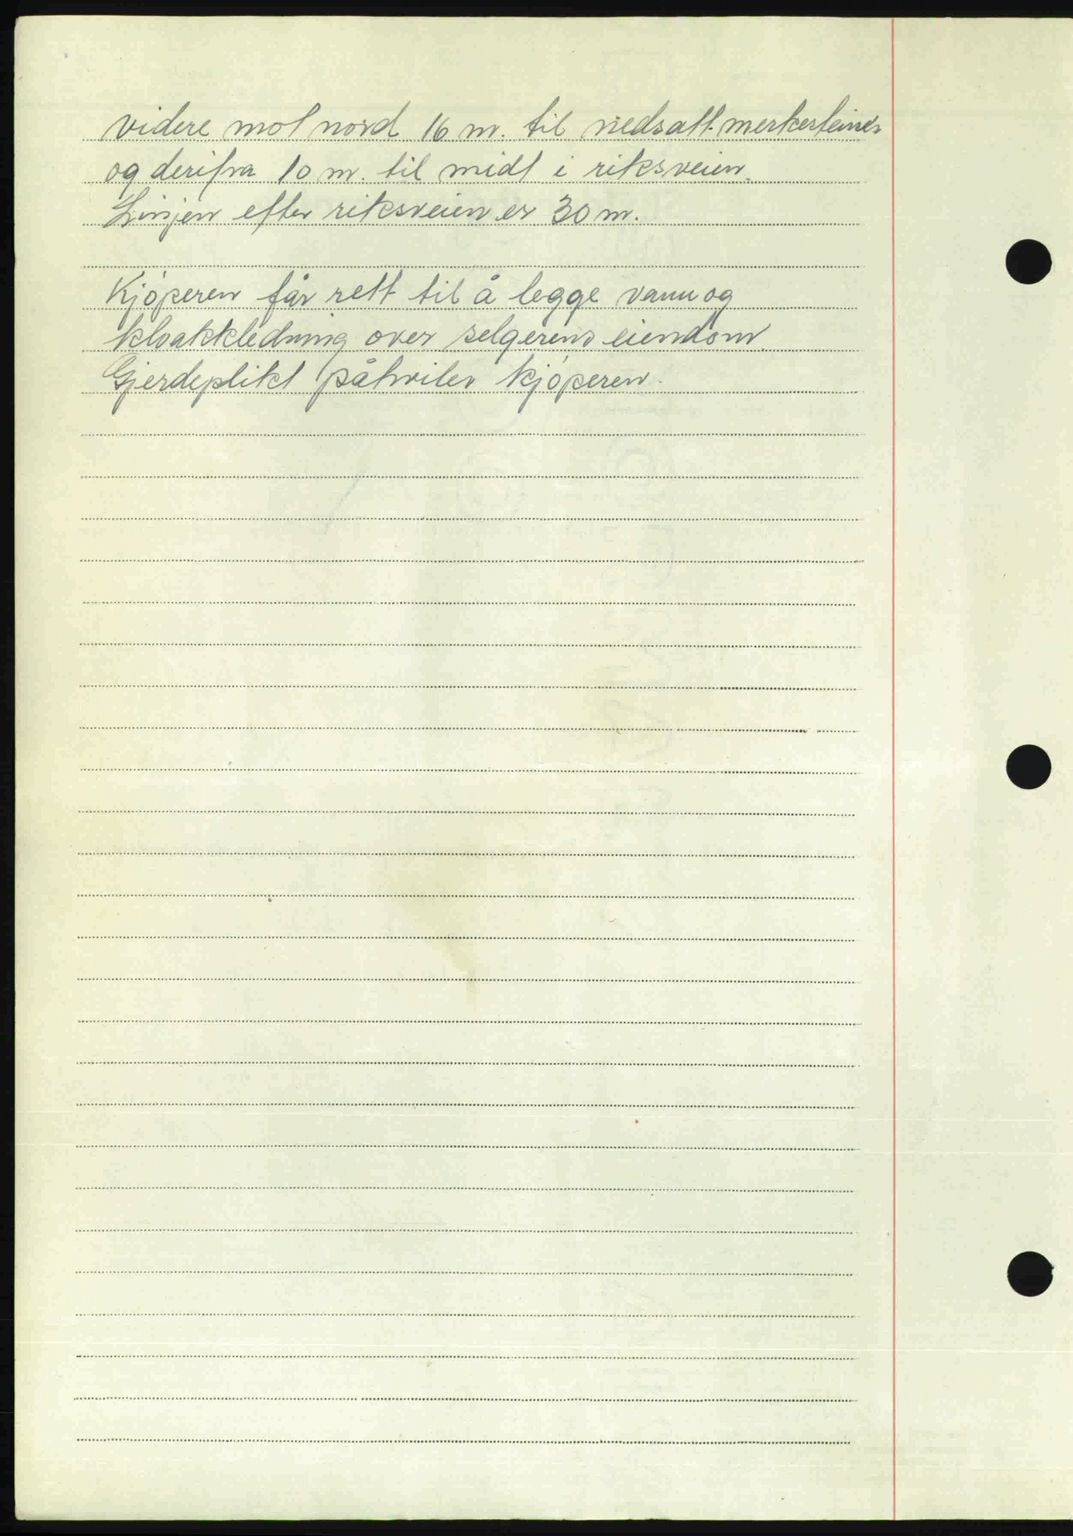 videre mot nord 16 m. til nedsatt merkesteiner
og derifra 10 m. til midt i riksveien.
Linjen efter riksveien er 30 m.
Kjøperen får rett til å legge vann og
kloakkledning over selgerens eiendom.
Gjerdeplikt påhviler kjøperen.